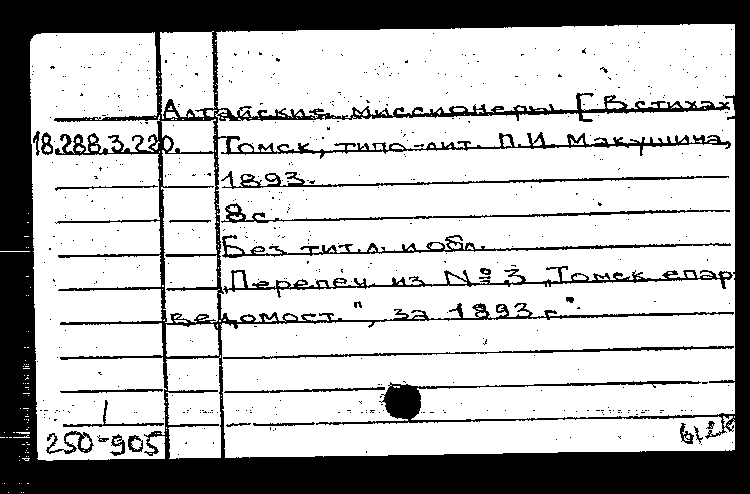 Алтайские миссионеры [ В стихах]
18.288.3.220. Томск, типо-лит. П.И. Макушина,
1893.
8 с.
Без тит.л. и обл.
„Перепеч из № 3 „Томск епар
ведомост.", за 1893 г".
250-905